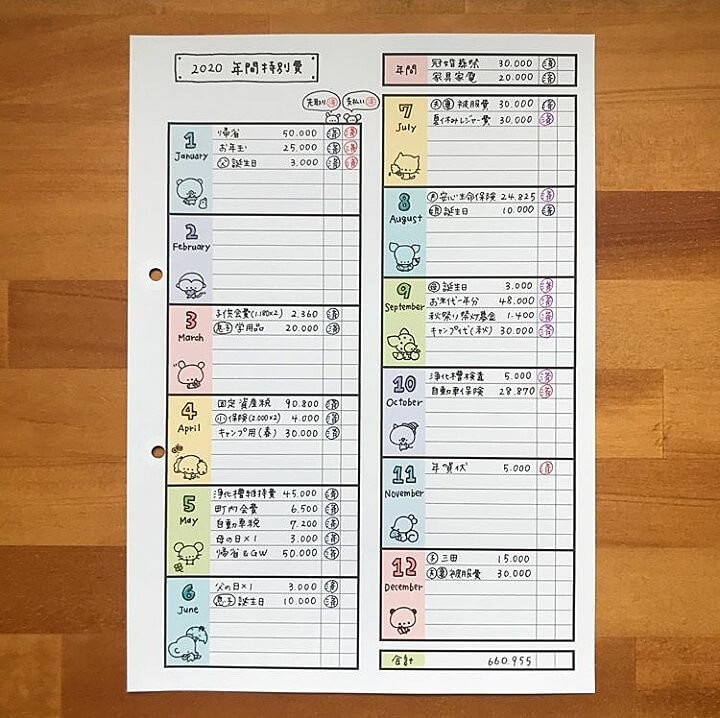 2020 年間特別費
先取り 済
支払い 済
1
January
帰省 50.000 済 済
お年玉 25.000 済 済
父 誕生日 3.000 済 済
2
February
3
March
子供会費(1.180×2) 2.360 済
息子 学用品 20.000 済
4
April
固定資産税 90.800 済
小 保険(2.000×2) 4.000 済
キャンプ用(春) 30.000 済
5
May
浄化槽維持費 45.000 済
町内会費 6.500 済
自動車税 7.200 済
母の日×1 3.000 済
帰省&GW 50.000 済
6
June
父の日×1 3.000 済
息子 誕生日 10.000 済
年間
冠婚葬祭 30.000 済
家具家電 20.000 済
7
July
夫 妻 被服費 30.000 済
夏休みレジャー費 30.000 済
8
August
安心生命保険 24.825 済
誕生日 10.000 済
9
September
誕生日 3.000 済
お米代一年分 48.000 済
秋祭り祭り基金 1.400 済
キャンプ代(秋) 30.000 済
10
October
浄化槽検査 5.000 済
自動車保険 28.870 済
11
November
年賀状 5.000 済
12
December
三田 15.000
夫 妻 被服費 30.000
合計 660.955